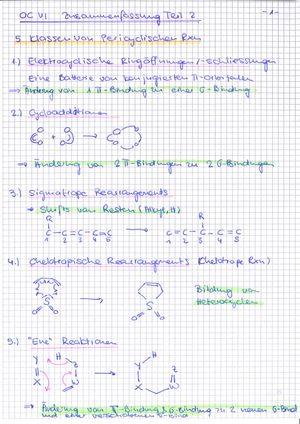 OC VI Zusammenfassung Teil 2 -1-
5 Klassen von Pericyclischen Rxn
1.) Elektrocyclische Ringöffnungen/-schliessungen
Eine Batterie von konjugierten π-orbitalen
⇒ Änderg von 1 π-Bindung zu einer σ-Bindung
2.) Cycloadditionen
+
⇒ Änderung von 2 π-Bindungen zu 2 σ-Bindungen
3.) Sigmatrope Rearrangements
→ Shifts von Resten (Alkyl, H)
R R
C-C=C-C=C C=C-C-C=C
1 2 3 4 5 1 2 3 4 5
4.) Cheletropische Rearrangements (Cheletrope Rxn)
Bildung von
Heterocyclen
S S
O O O O
5.) "Ene" Reaktionen
Y H Z Y H Z
X W X W
⇒ Änderung von π-Bindung & σ-Bindung zu 2 neuen σ-Bind
und einer verschobenen π-Bind